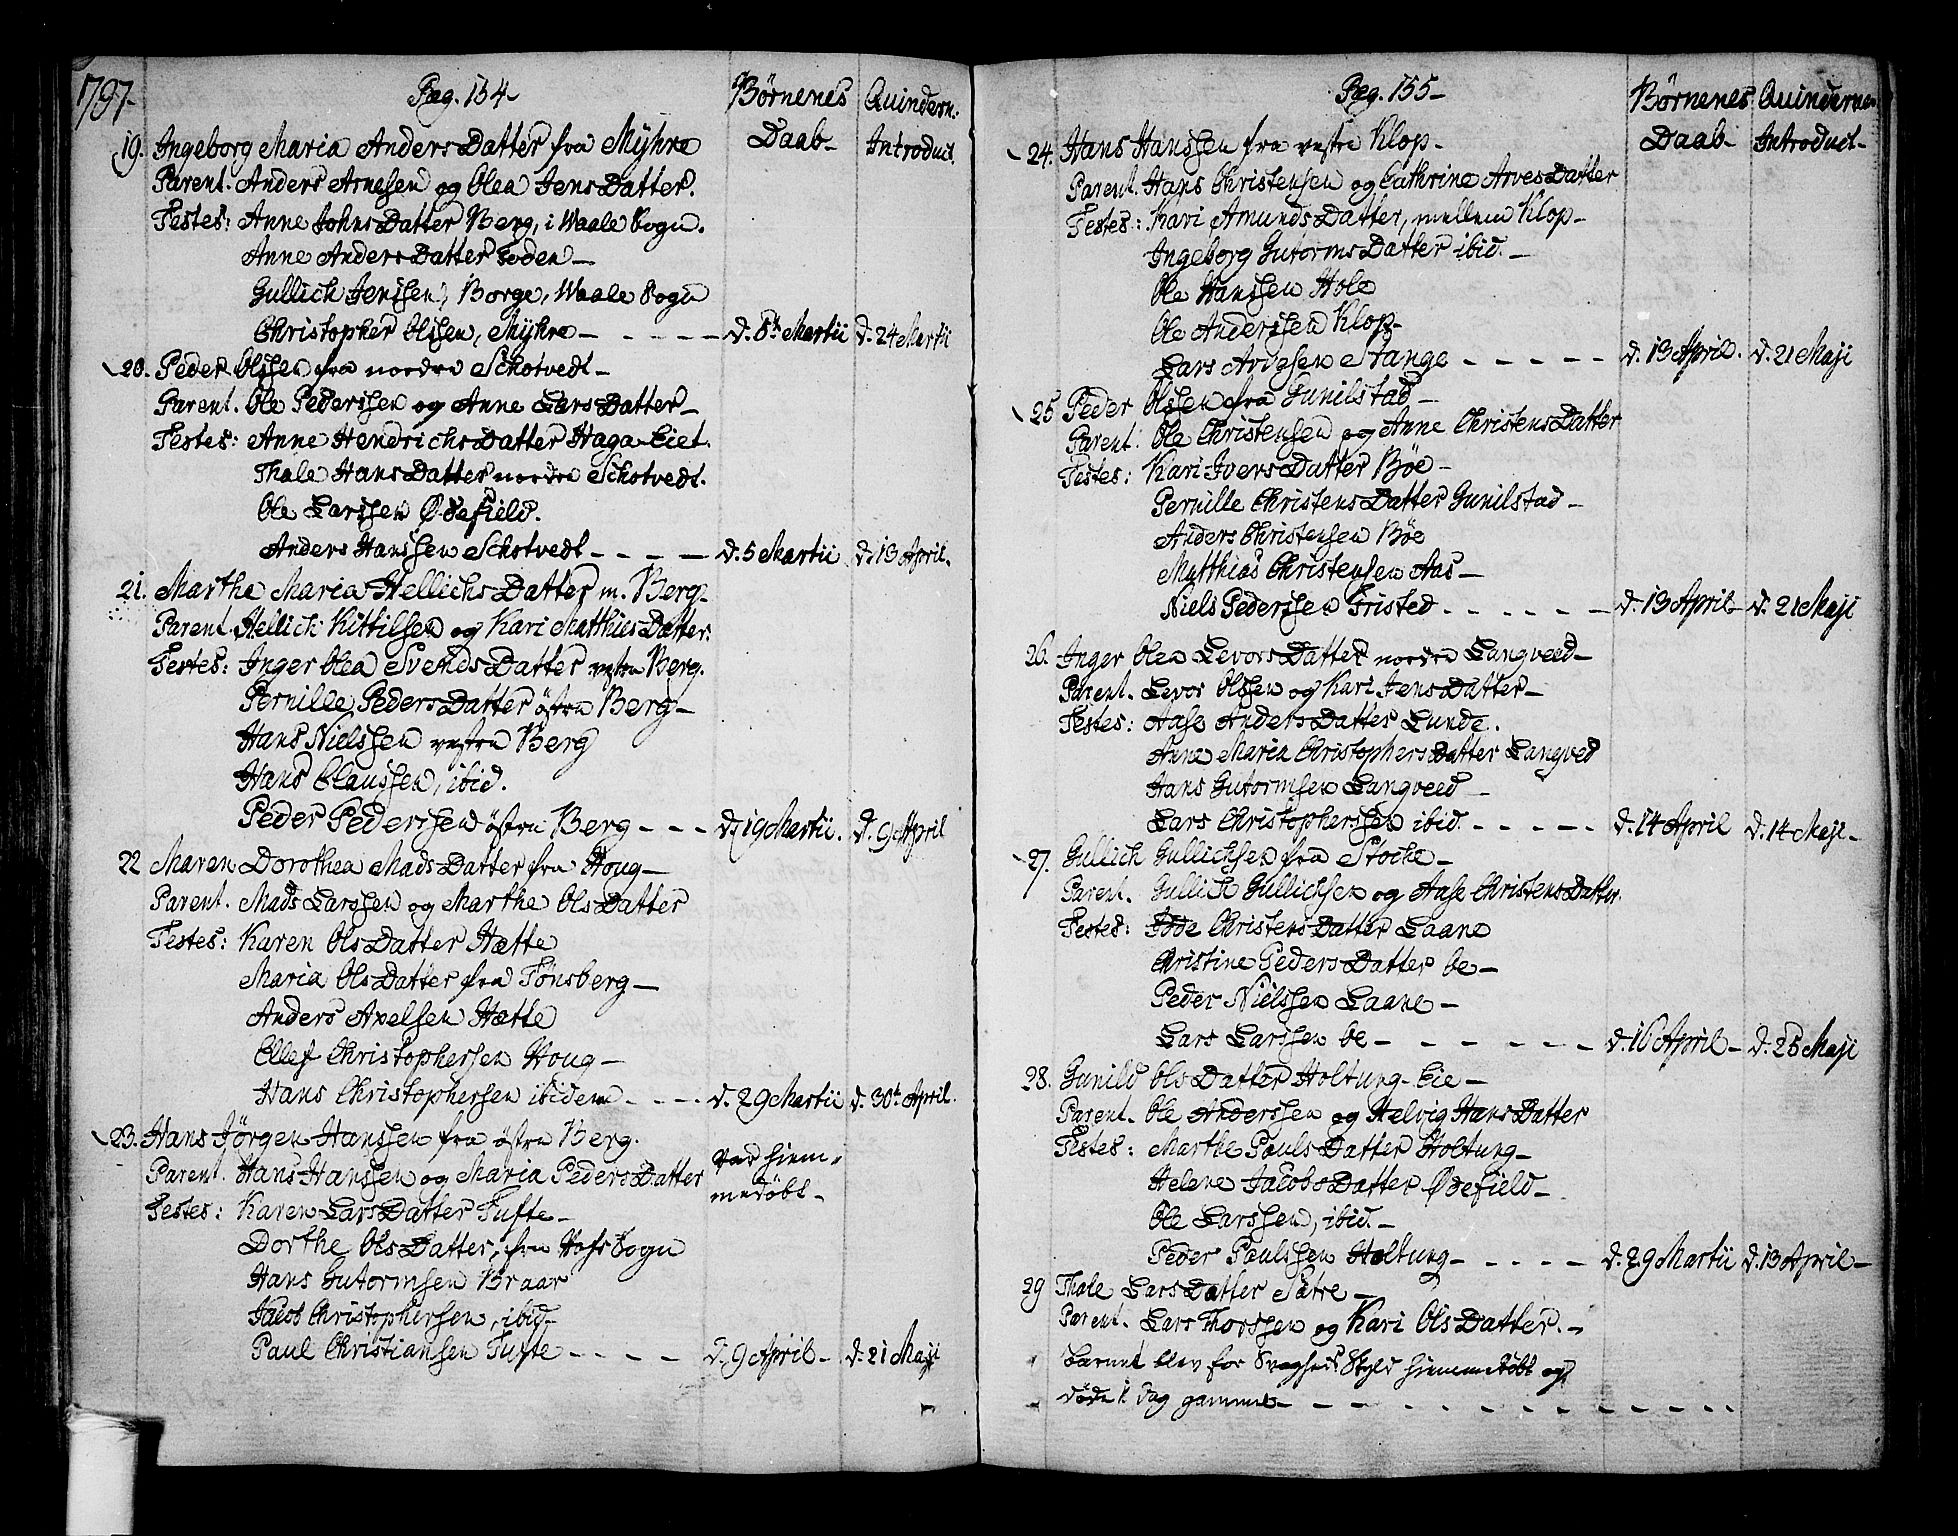 1797.
Pag. 154
Børnenes Daab
Quindern: Introduct.
19. Ingeborg Maria Anders Datter fra Myhre
Parent. Anders Arnesen og Olea Jens Datter.
Testes: Anne Johns Datter Berg, i Waale Sogn.
Anne Anders Datter
Gullich Jenssen, Borge, Waale Sogn
Christopher Olssen, Myhre - - - - d. 8t Martii d. 24 Martii
20. Peder Olssen fra nordre Schotvedt
Parent. Ole Pederssen og Anne Lars Datter
Testes: Anne Hendrichs Datter Haga Eiet.
Thale Hans Datter nordre Schotvedt.
Ole Larssen Ødefield.
Anders Hanssen Schotvedt - - - - d. 5 Martii d. 13 April.
21. Marthe Maria Hellichs Datter m. Berg
Parent. Hellich Kittilsen og Kari Matthies Datter:
Testes: Inger Olea Svends Datter vestre Berg.
Pernille Peders Datter østre Berg
Hans Nielssen vestre Berg
Hans Claussen, ibid.
Peder Pederssen østre Berg - - - d. 19 Martii. d. 9 April
22 Maren Dorothea Mads Datter fra Houg
Parent. Mads Larssen og Marthe Ols Datter
Testes: Karen Ols Datter Hætte
Maria Ols Datter fra Tønsberg
Anders Axelsen Hætte
Ellef Christophersen Houg
Hans Christophersen ibidem - - - d. 29 Martii d. 30t April.
23. Hans Jørgen Hanssen fra østre Berg.
Parent. Hans Hanssen og Maria Peders Datter
var hiem-
medøbt
Testes: Karen Lars Datter Tufte
Dorthe Ols Datter, fra Hofs Sogn
Hans Gutormsen Braar
Jacob Christophersen, ibid
Paul Christiansen Tufte - - - - d. 9 April d. 21 Maji
Pag. 155
Børnenes Daab
Quindernes Introduct
24. Hans Hanssen fra vestre Klop
Parent. Hans Christensen og Cathrine Arves Datter
Testes: Kari Amunds Datter, mellem Klop
Ingeborg Gutorms Datter ibid.
Ole Hanssen Hole
Ole Anderssen Klop
Lars Arvesen Stange - - - - - d. 13 April. d. 21 Maji
25 Peder Olssen fra Gunilstad
Parent: Ole Christensen og Anne Christens Datter
Testes: Kari Ivers Datter Bøe
Pernille Christens Datter Gunilstad
Anders Christensen Bøe
Matthias Christensen Aas
Niels Pederssen - - - - - d. 13 April d. 21 Maji
26. Inger Olea Levors Datter nordre Langveed
Parent. Levor Olssen og Kari Jens Datter
Testes: Aase Anders Datter Lunde.
Anne Maria Christophers Datter Langved
Hans Gutormsen Langveed
Lars Christopherssen ibid. - - - - d. 14 April d. 14 Maji
27. Gullich Gullichsen fra Stoche
Parent. Gullich Gullichsen og Aase Christens Datter.
Testes: Ode Christens Datter Laane
Christine Peders Datter be
Peder Nielssen Laane
Lars Larssen be - - - - - - d. 16 April d. 28 Maji
28. Gunild Ols Datter Holtung-Eie
Parent. Ole Anderssen og Helvig Hans Datter
Testes: Marthe Pauls Datter Holtung
Helene Jacobs Datter Ødefield
Ole Larssen, ibid.
Peder Paulssen Holtung - - - - d. 29 Martii d. 13 April
29 Thale Lars Datter Sætre
Parent. Lars Thorssen og Kari Ols Datter.
Barnet blev for Svagheds Skyld hiemmedøbt og
døde 1 Dag gammel - - - - - - - - - -